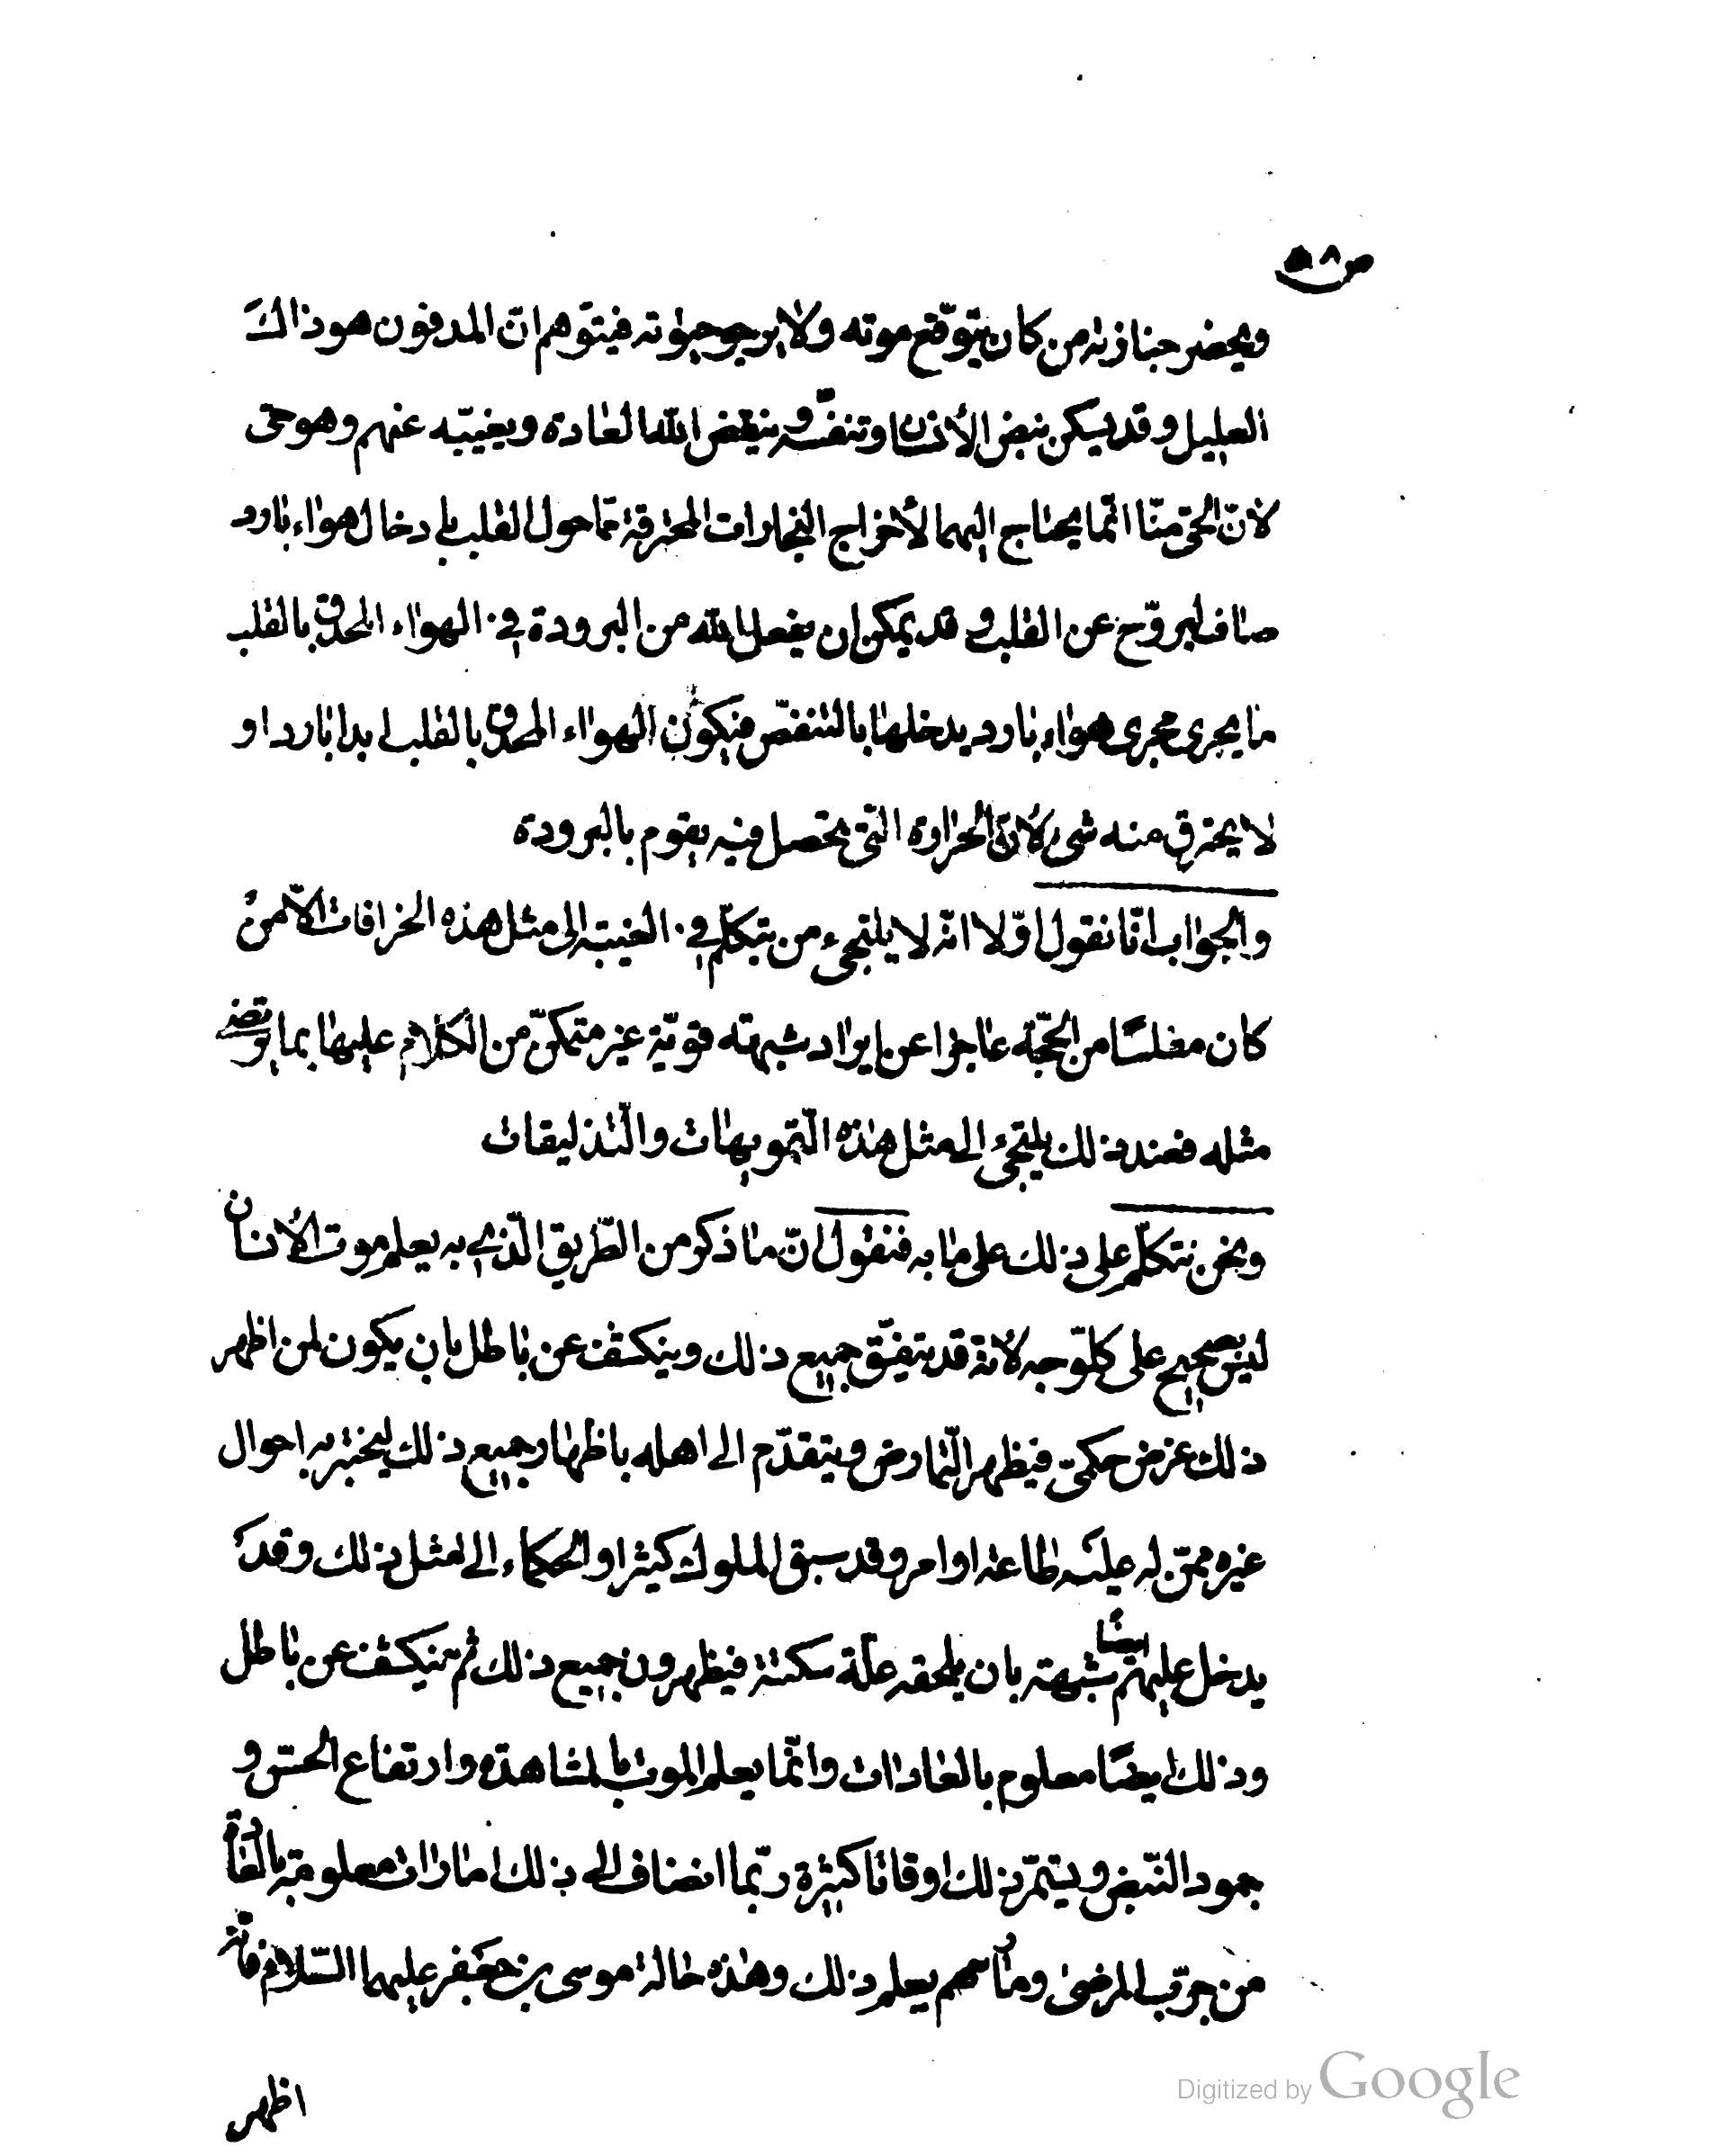 ص٥٨
ويحضر جنازته من كان يتوقّع موته ولا يرجو حيٰوته فيتوّهم انّ المدفون هو ذاك
العليل وقد يسكن نبض الأنسان وتنفّسه وينقض الله العادة ويغيّبه عنهم وهو حىّ
لانّ الحىّ منّا انّما يحتاج اليهما لأخراج البخارات المحترقة ممّا حول القلب بادخال هواء بارد
صاف ليروّح عن القلب و قد يمكن ان يفعل الله من البرودة في الهواء المحدق بالقلب
ما يجرى مجرى هواء بارد يدخلها بالتنفّس فيكون الهواء المحدق بالقلب ابدا باردا و
لا يحترق منه شىء لانّ الحرارة الّتى تحصل فيه يقوم بالبرودة
والجواب انّا نقول اوّلا انّه لا يلتجىء من يتكلّم في الغيبة الى مثل هذه الخرافات الاّ من
كان مفلسًا من الحجّة عاجزا عن ايراد شبهته قويّة غير متمكّن من الكلام عليها بما يرتضى
مثله فعند ذلك يلتجىء الى مثل هذه التّمويهات والتّذليقات
ونحن نتكلّم على ذلك على ما به فنقول انّ ما ذكر من الطّريق الّذي به يعلم موت الأنسان
ليس بصحيح على كلّ وجه لانّه قد يتفّق جميع ذلك وينكشف عن باطل بان يكون لمن اظهر
ذلك غرض حكمىّ فيظهر التّمارض ويتقدّم الى اهله باظهار جميع ذلك ليختبر به احوال
غيره ممّن له عليه طاعة اوامر وقد سبق الملوك كثيرا والحكماء الى مثل ذلك وقد
يدخل عليهم ايضًا شبهة بان يلحقه علّة سكتة فيظهرون جميع ذلك ثم ينكشف عن باطل
وذلك ايضًا معلوم بالعادات وانّما يعلم الموت بالمشاهدة وارتفاع الحسّ و
جمود النّبض ويستمرّ ذلك اوقاتا كثيرة ربّما انضاف الى ذلك امارات معلومة بالعادة
من جرّب المرضى ومارسهم يعلم ذلك وهذه حالة موسى بن جعفر عليهما السّلام فانّه
اظهر
Digitized by Google